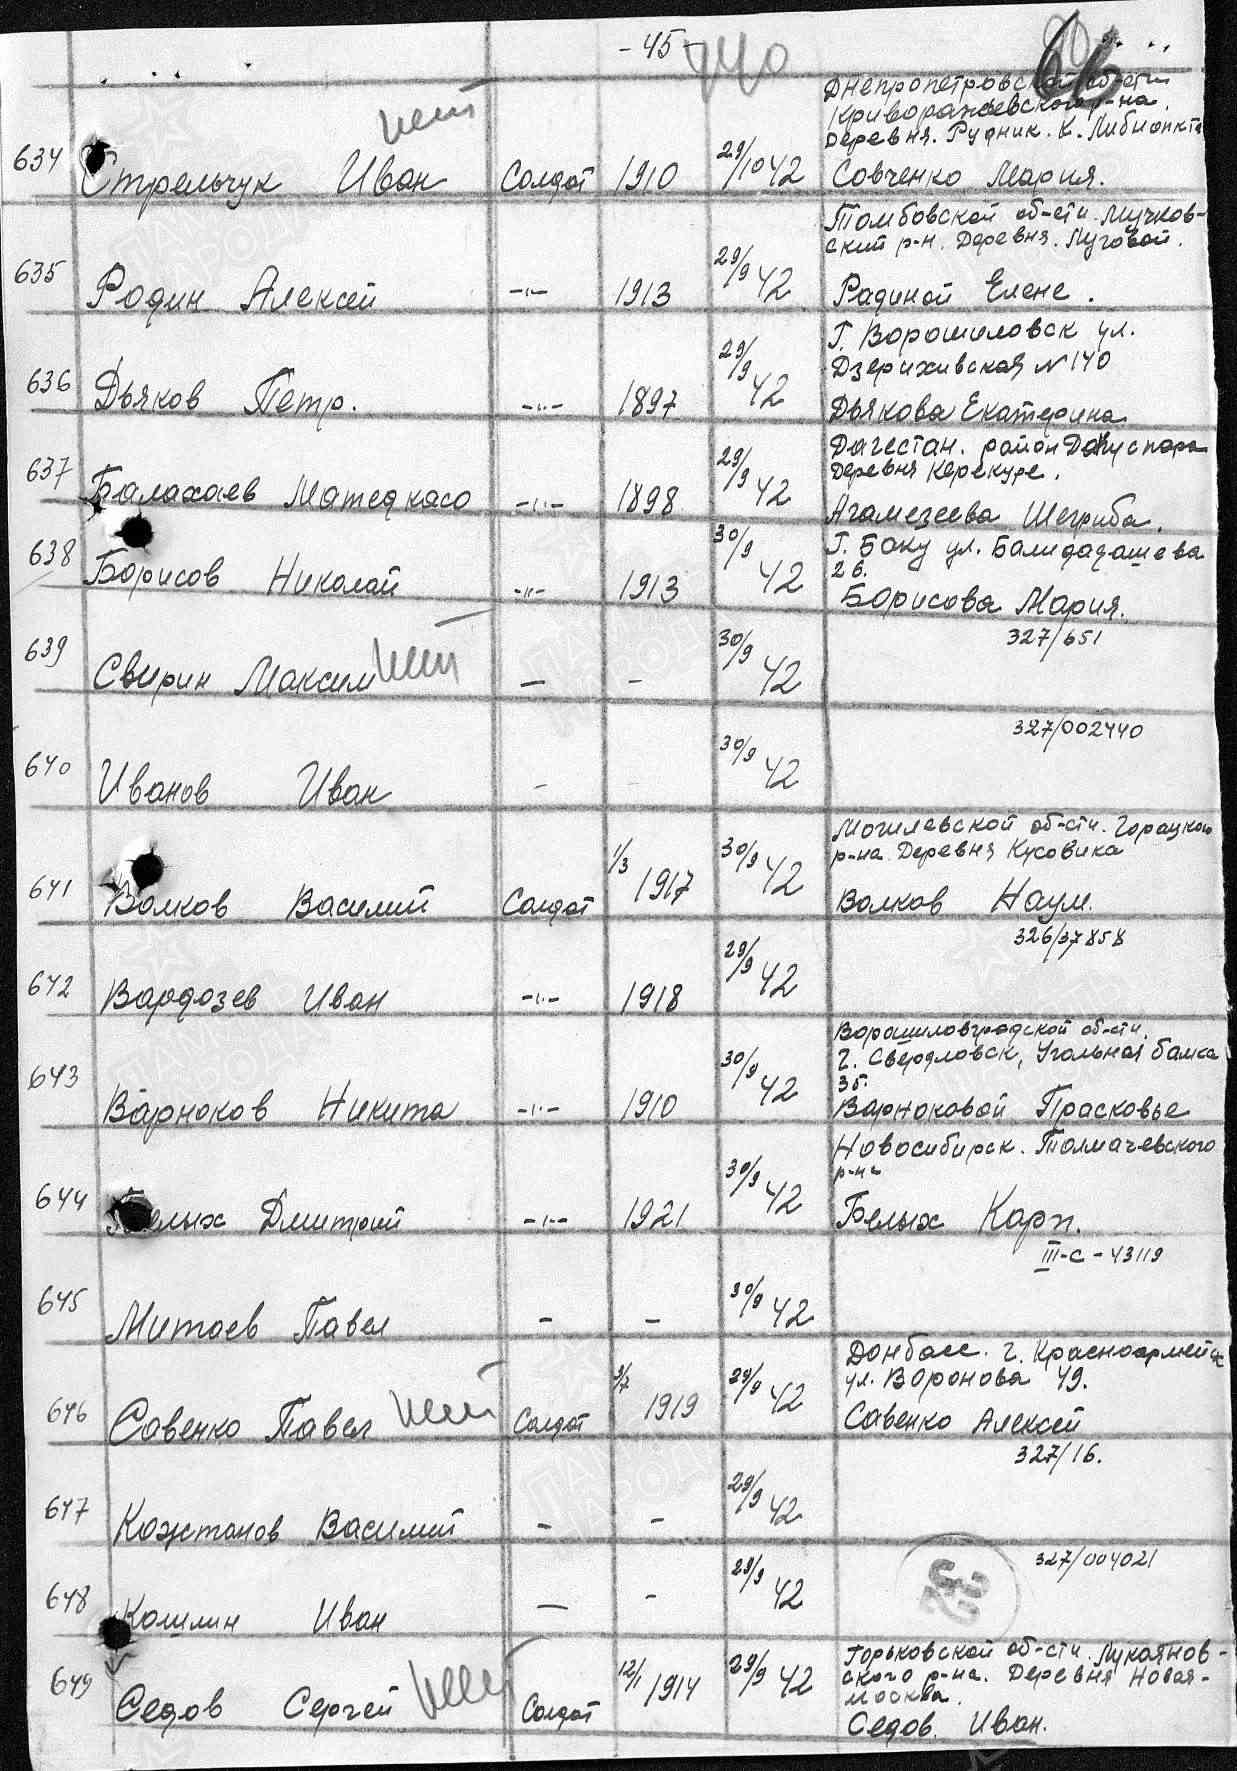 - 45 -
440
66
Днепропетровской об-сти
Криворожаевского р-на.
Деревня. Рудник. К. Либкнхта
634 Стрельчук Иван Солдат 1910 29/10 42 Совченко Мария.
Томбовской об-сти. Мучков-
ский р-н. Деревня. Луговой.
635 Родин Алексей -"- 1913 29/9 42 Радиной Елене.
Г. Ворошиловск ул.
Дзержинвская N 140
636 Дьяков Петр. -"- 1897 29/9 42 Дьякова Екатерина
Дагестан. район
Деревня Керекуре.
637 Балахаев -"- 1898 29/9 42 Агамезеева
Г. Баку ул. Балидадашева
26.
638 Борисов Николай -"- 1913 30/9 42 Борисова Мария.
327/651
639 Свирин Максим нет — - 30/9 42
327/002440
640 Иванов Иван - 30/9 42
Могилевской об-сти. Горацкого
р-на. Деревня Кусовика
641 Волков Василий Солдат 1/3 1917 30/9 42 Волков Наум.
326/37858
642 Вардозев Иван -"- 1918 29/9 42
Ворошиловградской об-сти.
г. Свердловск, Угольная балка
35.
643 Варноков Никита -"- 1910 30/9 42 Варноковой Прасковье
Новосибирск. Толмачевского
р-на
644 Белых Дмитрий -"- 1921 30/9 42 Белых Карп.
III-С-43119
645 Митаев Павел - - 30/9 42
Донбасс. г. Красноармейск
ул. Воронова 49.
646 Савенко Павел нет Солдат 1919 29/9 42 Савенко Алексей
327/16.
647 Кажтанов Василий - - 29/9 42
327/004021
648 Кашлин Иван — - 29/9 42
32
Горьковской об-сти. Лукоянов-
ского р-на. Деревня Новая-
Москва.
649 Седов Сергей нет Солдат 12/1 1914 29/9 42 Седов. Иван.